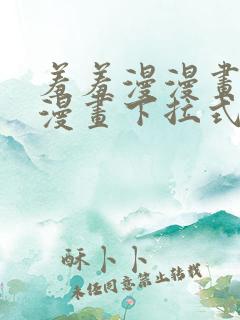 羞羞漫漫畫
漫畫下拉式
酥卜卜
未经同意禁止转载